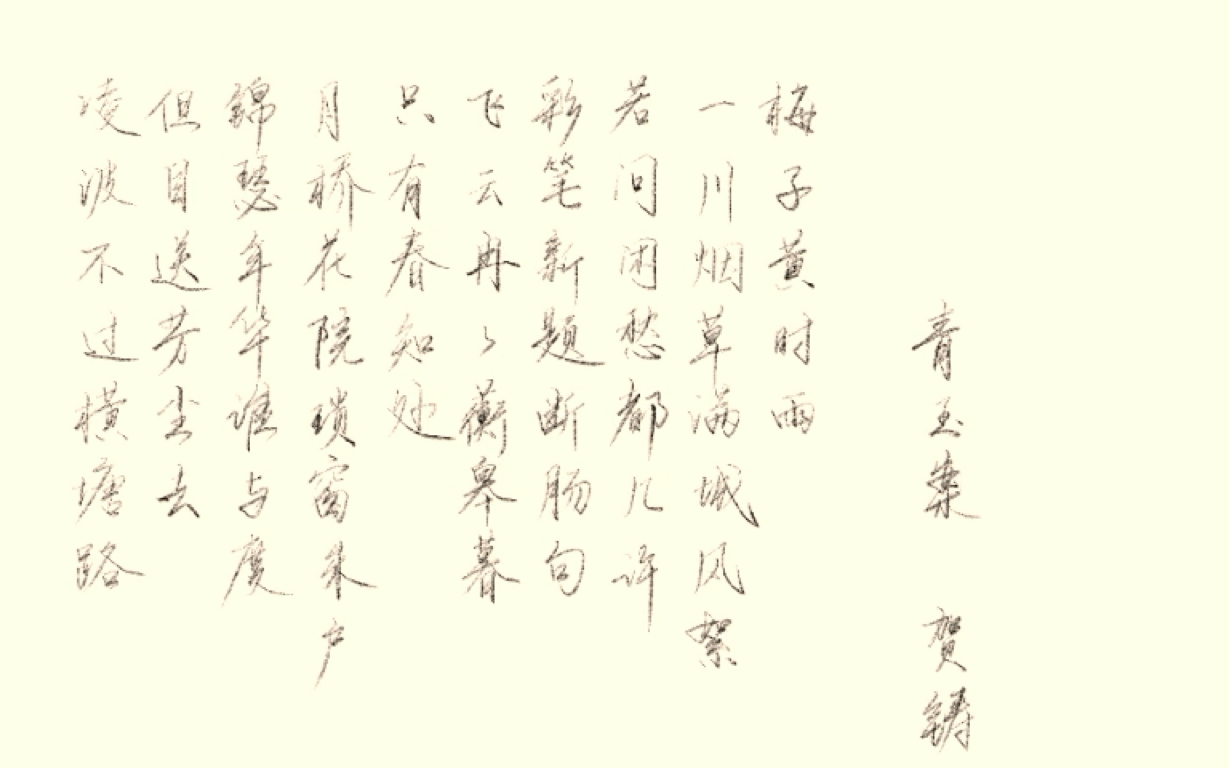 凌波不过横塘路
但目送芳尘去
錦瑟年华谁与度
月桥花院琐窗朱户
只有春知处
飞云冉々蘅皋暮
彩笔新题断肠句
若问闲愁都几许
一川烟草满城风絮
梅子黄时雨
青玉案 贺铸